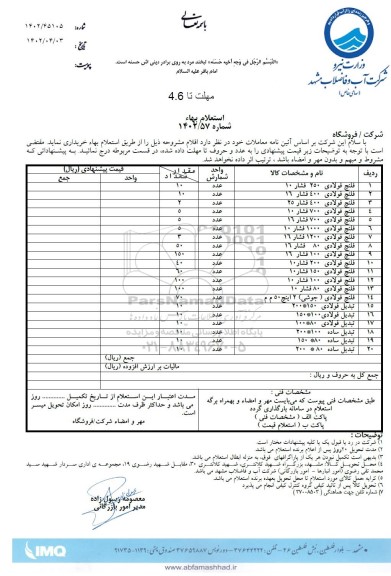 باسمه تعالی
شماره: ۱۴۰۲/۴۵۱۰۵
تاریخ: ۱۴۰۲/۰۴/۰۳
پیوست:
وزارت نیرو
شرکت آب و فاضلاب مشهد
(سهامی خاص)
«تَبَسُّمُ الرَّجُلِ فی وَجهِ أخیهِ حَسَنَه» لبخند مرد به روی برادر دینی اش حسنه است.
امام باقر علیه السلام
مهلت تا 4.6
استعلام بهاء
شماره ۱۴۰۲/۵۷
شرکت / فروشگاه
با سلام این شرکت بر اساس آئین نامه معاملات خود در نظر دارد اقلام مشروحه ذیل را از طریق استعلام بهاء خریداری نماید. مقتضی
است با توجه به توضیحات زیر قیمت پیشنهادی را به عدد و حروف تا مهلت داده شده، در قسمت مربوطه درج نمائید. به پیشنهاداتی که
مشروط و مبهم و بدون مهر و امضاء باشد، ترتیب اثر داده نخواهد شد.
ردیف نام و مشخصات کالا واحد شمارش مقدار قیمت پیشنهادی (ریال)
واحد جمع
۱ فلنج فولادی ۲۵۰ فشار ۱۰ عدد ۱۰
۲ فلنج فولادی ۴۰۰ فشار ۱۶ عدد ۱۰
۳ فلنج فولادی ۴۰۰ فشار ۲۵ عدد ۲
۴ فلنج فولادی ۷۰۰ فشار ۱۰ عدد ۵
۵ فلنج فولادی ۷۰۰ فشار ۱۶ عدد ۵
۶ فلنج فولادی ۱۰۰۰ فشار ۱۰ عدد ۵
۷ فلنج فولادی ۱۲۰۰ فشار ۱۶ عدد ۳
۸ فلنج فولادی ۸۰ فشار ۱۶ عدد ۵۰
۹ فلنج فولادی ۱۰۰ فشار ۱۶ عدد ۱۵۰
۱۰ فلنج فولادی ۲۰۰ فشار ۱۰ عدد ۴۰
۱۱ فلنج فولادی ۱۵۰ فشار ۱۰ عدد ۶۰
۱۲ فلنج فولادی ۱۰۰ فشار ۱۰ عدد ۱۰۰
۱۳ فلنج فولادی ۸۰ فشار ۱۰ عدد ۱۰۰
۱۴ فلنج فولادی (جوشی) ۲ اینچ ۵۰ م م عدد ۷۰
۱۵ تبدیل فولادی ۱۵۰*۲۰۰ عدد ۱۰
۱۶ تبدیل فولادی ۱۰۰*۱۵۰ عدد ۱۰
۱۷ تبدیل فولادی ۸۰*۱۰۰ عدد ۱۰
۱۸ تبدیل ساده ۱۰۰*۲۰۰ عدد ۱۰
۱۹ تبدیل ساده ۸۰*۱۵۰ عدد ۱۰
۲۰ تبدیل ساده ۸۰*۲۰۰ عدد ۱۰
جمع (ریال)
مالیات بر ارزش افزوده (ریال)
جمع کل به حروف و ریال:
مشخصات فنی:
طبق مشخصات فنی پیوست که می‌بایست مهر و امضاء و بهمراه برگه
استعلام در سامانه بارگذاری گردد
پاکت الف (مشخصات فنی)
پاکت ب (استعلام قیمت)
مدت اعتبار این استعلام از تاریخ تکمیل ......... روز
می باشد و حداکثر ظرف مدت ......... روز امکان تحویل میسر
است.
مهر و امضاء شرکت/فروشگاه
توضیحات:
۱) شرکت در رد یا قبول یک یا کلیه پیشنهادات مختار است
معصومه رسول زاده
مدیر امور بازرگانی
IMQ
www.abfamashhad.ir